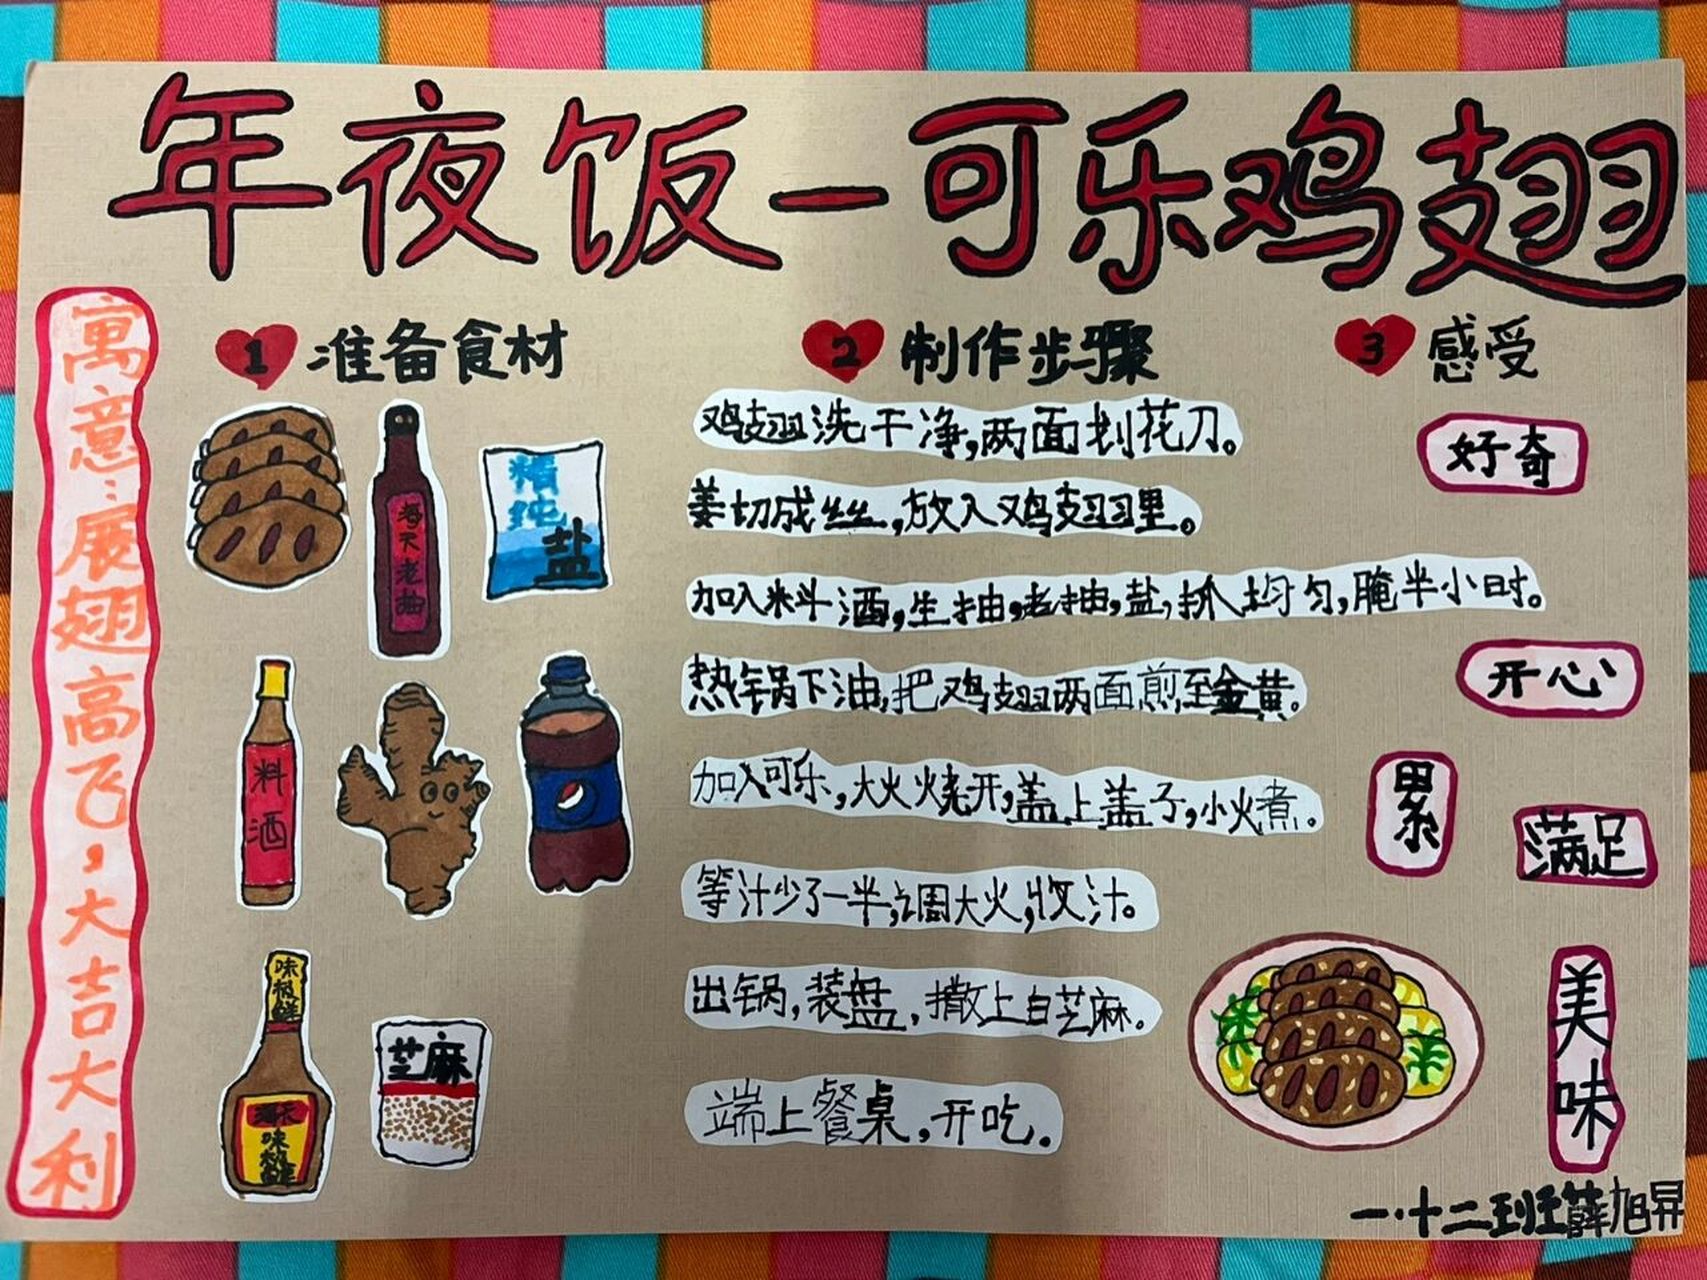 年夜饭—可乐鸡翅
寓意:展翅高飞,大吉大利
1 准备食材
海天老抽
精纯
盐
料酒
味极鲜
海天
味极鲜
芝麻
2 制作步骤
鸡翅洗干净,两面划花刀。
姜切成丝,放入鸡翅里。
加入料酒,生抽,老抽,盐,抓均匀,腌半小时。
热锅下油,把鸡翅两面煎至金黄。
加入可乐,大火烧开,盖上盖子,小火煮。
等汁少了一半,调大火,收汁。
出锅,装盘,撒上白芝麻。
端上餐桌,开吃。
3 感受
好奇
开心
累
满足
美味
一·十二班薛旭昇